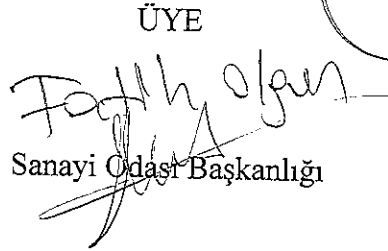 ÜYE
Fatih Olgun
Sanayi Odası Başkanlığı